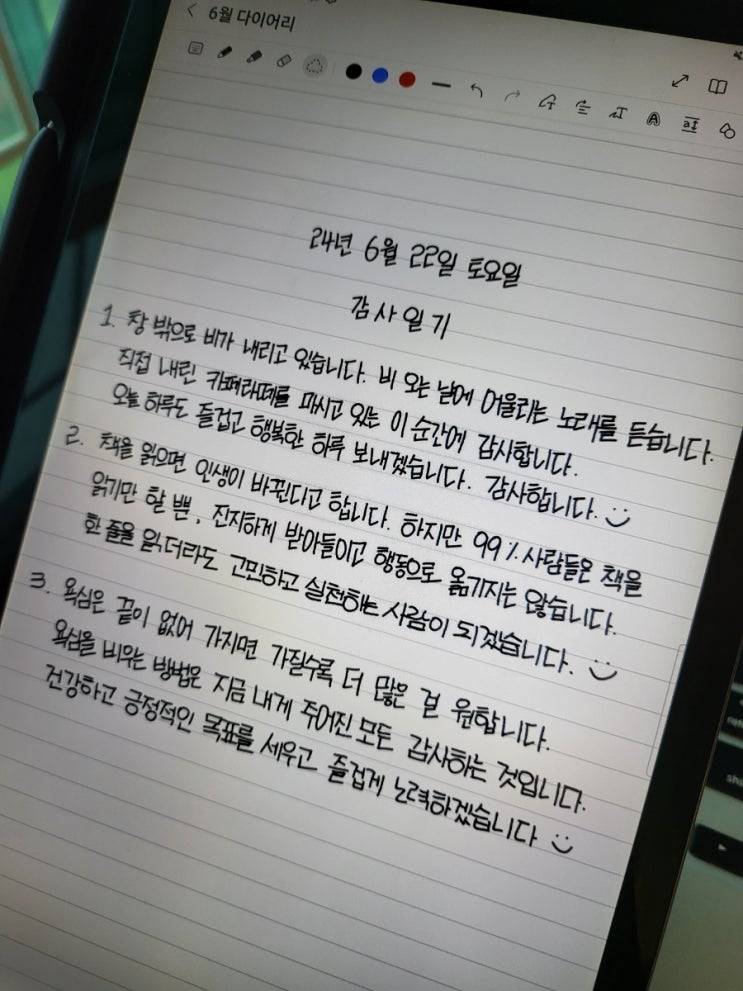 6월 다이어리
24년 6월 22일 토요일
감사일기
1. 창 밖으로 비가 내리고 있습니다. 비 오는 날에 어울리는 노래를 듣습니다.
직접 내린 카페라떼를 마시고 있는 이 순간에 감사합니다.
오늘 하루도 즐겁고 행복한 하루 보내겠습니다. 감사합니다.
2. 책을 읽으면 인생이 바뀐다고 합니다. 하지만 99% 사람들은 책을
읽기만 할 뿐, 진지하게 받아들이고 행동으로 옮기지는 않습니다.
한 줄을 읽더라도 고민하고 실천하는 사람이 되겠습니다.
3. 욕심은 끝이 없어 가지면 가질수록 더 많은 걸 원합니다.
욕심을 비우는 방법은 지금 내게 주어진 모든 감사하는 것입니다.
건강하고 긍정적인 목표를 세우고 즐겁게 노력하겠습니다